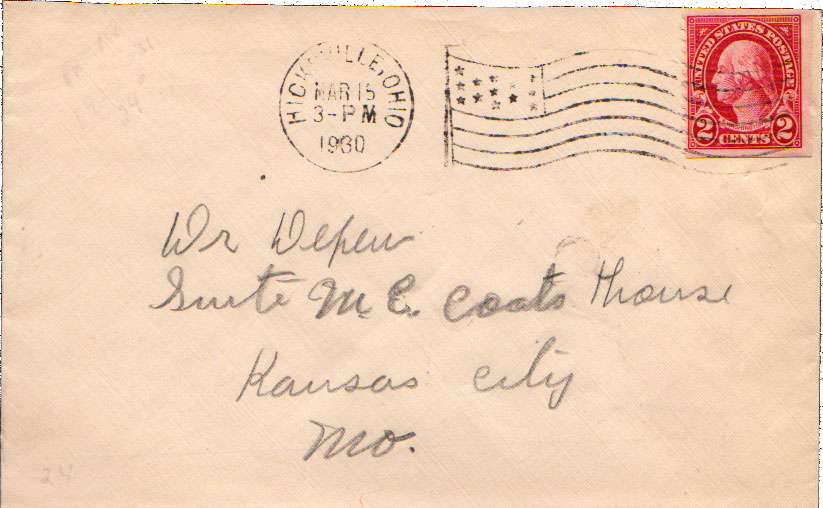 HICKSVILLE, OHIO
MAR 15
3-PM
1930
UNITED STATES POSTAGE
2 CENTS 2
Dr Depew
Suite M C. Coats House
Kansas City
Mo.
24